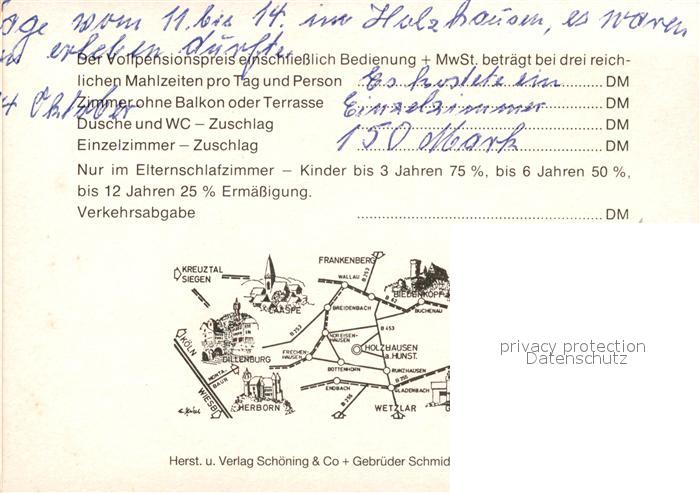 age vom 11. bis 14. im Holzhausen, es waren
erleben durfte.
Der Vollpensionspreis einschließlich Bedienung + MwSt. beträgt bei drei reich-
lichen Mahlzeiten pro Tag und Person Es kostete ein DM
14 Oktober
Zimmer ohne Balkon oder Terrasse Einzelzimmer DM
Dusche und WC – Zuschlag DM
150 Mark
Einzelzimmer – Zuschlag DM
Nur im Elternschlafzimmer – Kinder bis 3 Jahren 75 %, bis 6 Jahren 50 %,
bis 12 Jahren 25 % Ermäßigung.
Verkehrsabgabe DM
KREUZTAL
SIEGEN
FRANKENBERG
WALLAU
B 253
LAASPE
BREIDENBACH
B 62
BIEDENKOPF
BUCHENAU
B 253
B 453
KÖLN
DILLENBURG
FRECHEN-
HAUSEN
NDR.EISEN-
HAUSEN
HOLZHAUSEN
a. HÜNST.
BOTTENHORN
RUNZHAUSEN
MONTA-
BAUR
WIESB
HERBORN
ENDBACH
B 255
GLADENBACH
B 255
WETZLAR
G
privacy protection
Datenschutz
Herst. u. Verlag Schöning & Co + Gebrüder Schmid